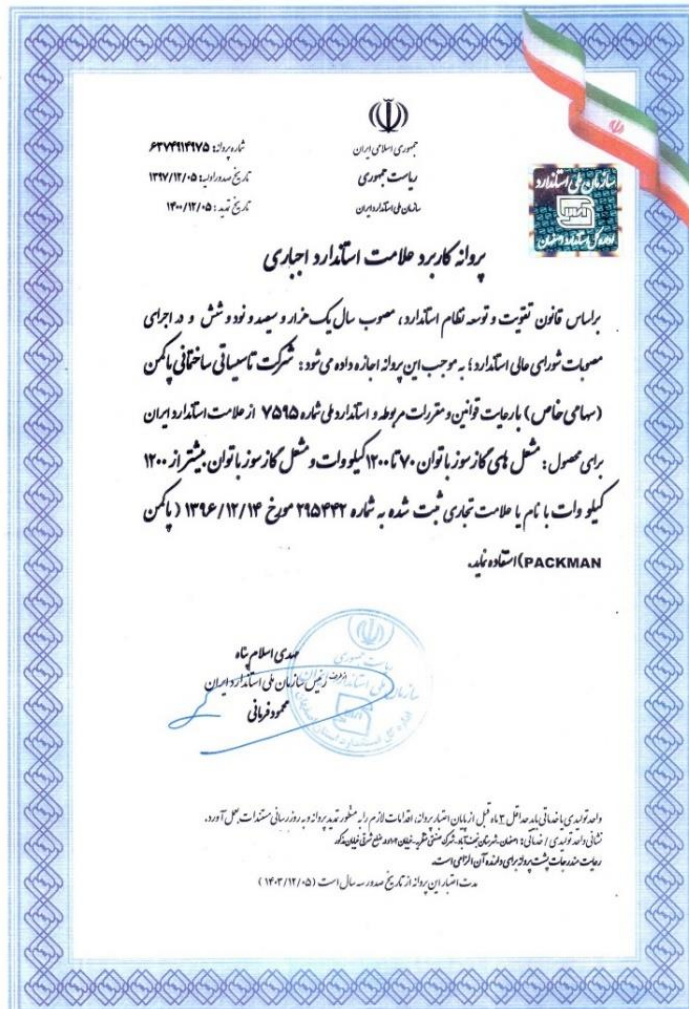 جمهوری اسلامی ایران
ریاست جمهوری
سازمان ملی استاندارد ایران
شماره پروانه: ۶۳۷۴۹۱۴۹۷۵
تاریخ صدور اولیه: ۱۳۹۷/۱۲/۰۵
تاریخ تمدید: ۱۴۰۰/۱۲/۰۵
سازمان ملی استاندارد
اداره کل استاندارد اصفهان
پروانه کاربرد علامت استاندارد اجباری
براساس قانون تقویت و توسعه نظام استاندارد، مصوب سال یک هزار و سیصد و نود و شش و در اجرای
مصوبات شورای عالی استاندارد؛ به موجب این پروانه اجازه داده می شود: شرکت تاسیساتی ساختمانی پاکمن
(سهامی خاص) با رعایت قوانین و مقررات مربوطه و استاندارد ملی شماره ۷۵۹۵ از علامت استاندارد ایران
برای محصول: مشعل های گازسوز با توان ۷۰ تا ۱۲۰۰ کیلو وات و مشعل گازسوز با توان بیشتر از ۱۲۰۰
کیلو وات با نام یا علامت تجاری ثبت شده به شماره ۲۹۵۴۴۲ مورخ ۱۳۹۶/۱۲/۱۴ (پاکمن
PACKMAN) استفاده نماید.
مهدی اسلام پناه
از طرف رئیس سازمان ملی استاندارد ایران
محمود فرمانی
واحد تولیدی یا خدماتی باید حداقل ۳ ماه قبل از پایان اعتبار پروانه، اقدامات لازم را به منظور تمدید پروانه و به روز رسانی مستندات بعمل آورد.
نشانی واحد تولیدی / خدماتی: اصفهان، شهرستان نجف آباد، شهرک صنعتی
رعایت مندرجات پشت پروانه برای دارنده آن الزامی است.
مدت اعتبار این پروانه از تاریخ صدور سه سال است (۱۴۰۳/۱۲/۰۵)